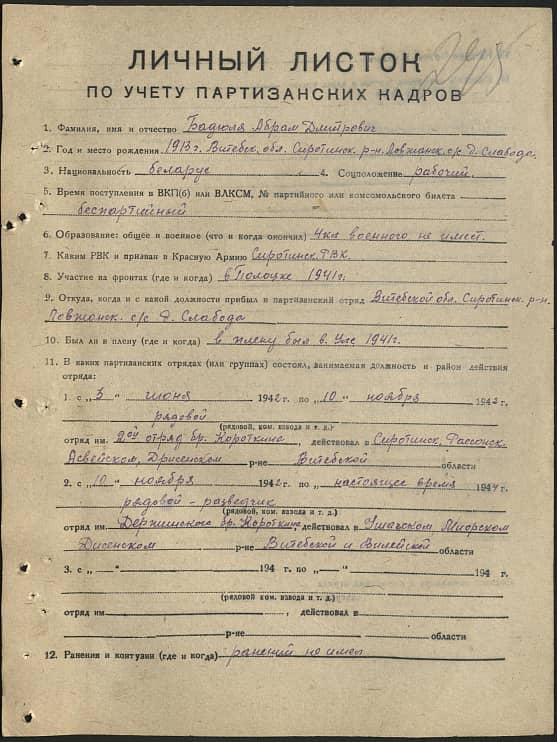 ЛИЧНЫЙ ЛИСТОК
ПО УЧЕТУ ПАРТИЗАНСКИХ КАДРОВ
1. Фамилия, имя и отчество Бадюля Абрам Дмитрович
2. Год и место рождения 1913 г. Витебск. обл. Сиротинск. р-н. Ловжанск. с/с д. Слабода.
3. Национальность беларус 4. Соцположение рабочий.
5. Время поступления в ВКП(б) или ВЛКСМ, № партийного или комсомольского билета
беспартийный
6. Образование: общее и военное (что и когда окончил) 4 кл военного не имеет.
7. Каким РВК и призван в Красную Армию Сиротинск. РВК.
8. Участие на фронтах (где и когда) в Полоцке 1941 г.
9. Откуда, когда и с какой должности прибыл в партизанский отряд Витебской обл. Сиротинск. р-н.
Ловжанск. с/с д. Слабода
10. Был ли в плену (где и когда) в плену был в. Уле 1941 г.
11. В каких партизанских отрядах (или группах) состоял, занимаемая должность и район действия
отряда:
1. с „5“ июня 1942 г. по „10“ ноября 1942 г.
рядовой
(рядовой, ком. взвода и т. д.)
отряд им. 2ой отряд бр. Короткина, действовал в Сиротинск, Рассонск.
Асвейском, Дрисенском р-не Витебской области
2. с „10“ ноября 1942 г. по „настоящее время 1944 г.
рядовой - разведчик
(рядовой, ком. взвода и т. д.)
отряд им. Держинского бр. Короткина, действовал в Ушачском Миорском
Дисенском р-не Витебской и Вилейской области
3. с „ “ 194 г. по „ “ 194 г.
(рядовой ком. взвода и т. д.)
отряд им , действовал в
р-не области
12. Ранения и контузии (где и когда) ранений не имел